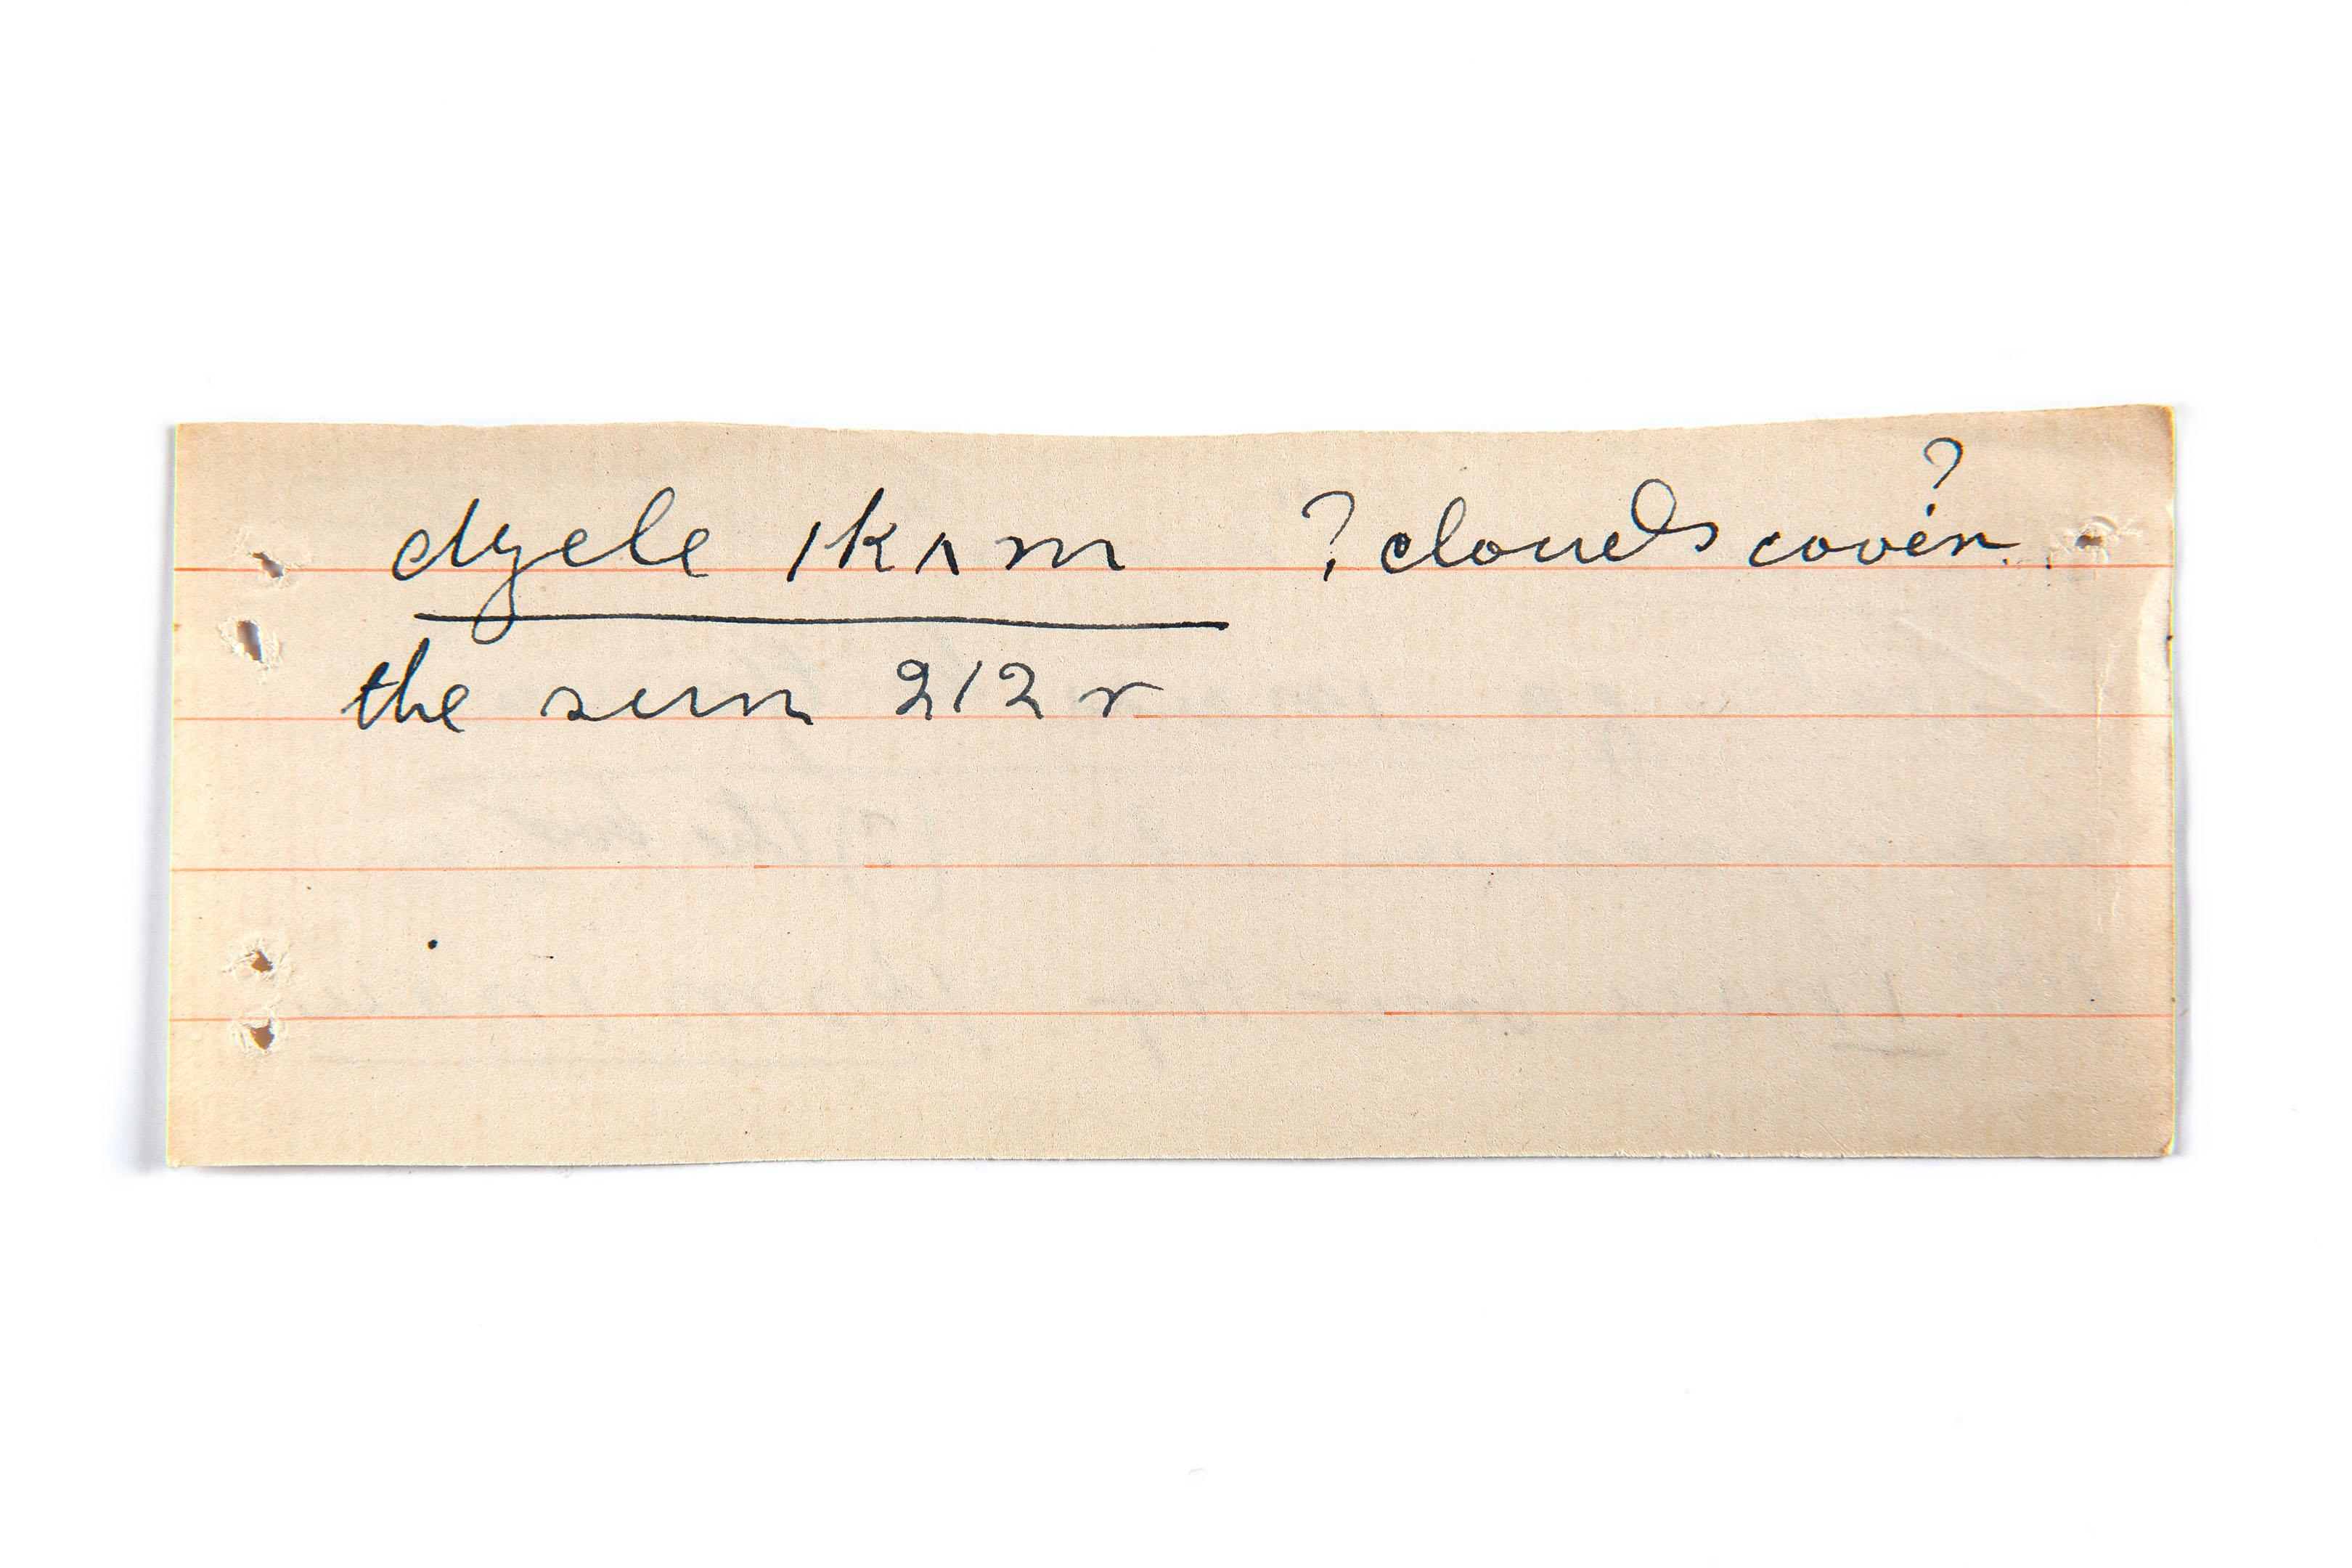 dyele ıkʌm ? clouds cover ?
the sun 212 r